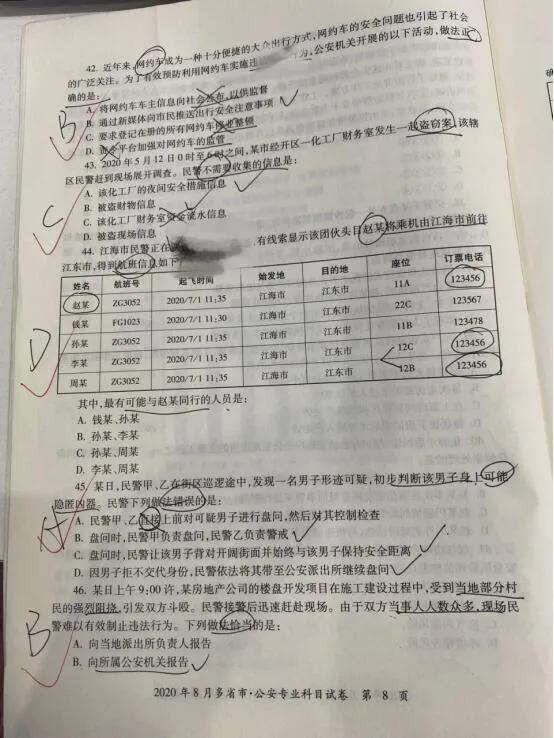 42. 近年来,网约车成为一种十分便捷的大众出行方式,网约车的安全问题也引起了社会
的广泛关注。为了有效预防利用网约车实施违 为,公安机关开展的以下活动,做法正
确的是:
A. 将网约车车主信息向社会公布,以供监督
B. 通过新媒体向市民推送出行安全注意事项
C. 要求登记在册的所有网约车停业整顿
D. 平台加强对网约车的监管
B
43. 2020年5月12日0时至6时之间,某市经开区一化工厂财务室发生一起盗窃案,该辖
区民警赶到现场展开调查。民警不需要收集的信息是:
A. 该化工厂的夜间安全措施信息
B. 被盗财物信息
C. 该化工厂财务室资金流水信息
D. 被盗现场信息
C
44. 江海市民警正在 ,有线索显示该团伙头目赵某将乘机由江海市前往
江东市,得到航班信息如下:
姓名 航班号 起飞时间 始发地 目的地 座位 订票电话
赵某 ZG3052 2020/7/1 11:35 江海市 江东市 11A 123456
钱某 FG1023 2020/7/1 11:30 江海市 江东市 22C 123567
孙某 ZG3052 2020/7/1 11:35 江海市 江东市 11B 123478
李某 ZG3052 2020/7/1 11:35 江海市 江东市 12C 123456
周某 ZG3052 2020/7/1 11:35 江海市 江东市 12B 123456
D
其中,最有可能与赵某同行的人员是:
A. 钱某、孙某
B. 孙某、李某
C. 孙某、周某
D. 李某、周某
45. 某日,民警甲、乙在街区巡逻途中,发现一名男子形迹可疑,初步判断该男子身上可能
隐匿凶器。民警下列做法错误的是:
A. 民警甲、乙直接上前对可疑男子进行盘问,然后对其控制检查
B. 盘问时,民警甲负责盘问,民警乙负责警戒
C. 盘问时,民警让该男子背对开阔街面并始终与该男子保持安全距离
D. 因男子拒不交代身份,民警依法将其带至公安派出所继续盘问
A
46. 某日上午9:00许,某房地产公司的楼盘开发项目在施工建设过程中,受到当地部分村
民的强烈阻挠,引发双方斗殴。民警接警后迅速赶赴现场。由于双方当事人人数众多,现场民
警难以有效制止违法行为。下列做法恰当的是:
A. 向当地派出所负责人报告
B. 向所属公安机关报告
B
2020年8月多省市·公安专业科目试卷 第 8 页